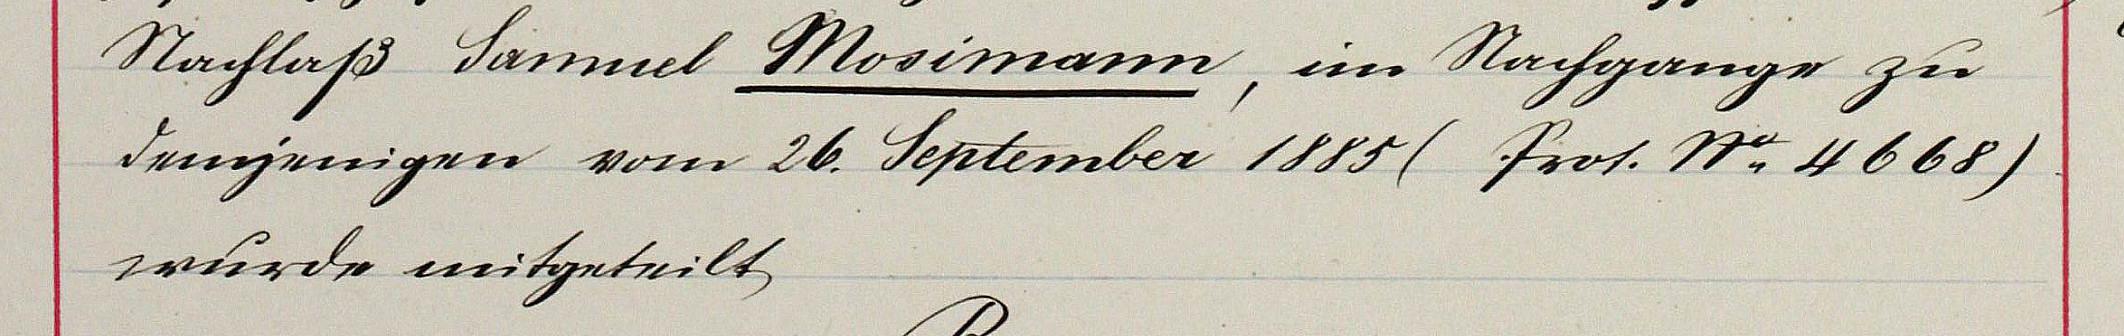 Nachlaß Samuel Mosimann, im Nachgange zu
demjenigen vom 26. September 1885 (Prot. No. 4668)
wurde mitgeteilt